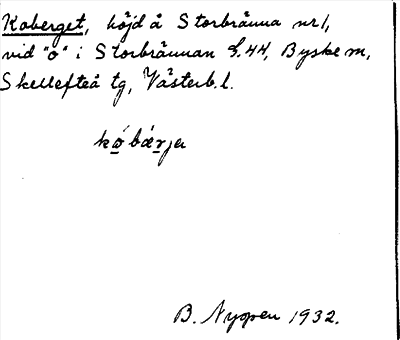 Koberget, höjd å Storbränna nr 1,
vid "o" i Storbrännan S.44, Byske m,
Skellefteå tg, Västerb. l.
kó bærjа
B. Nygren 1932.